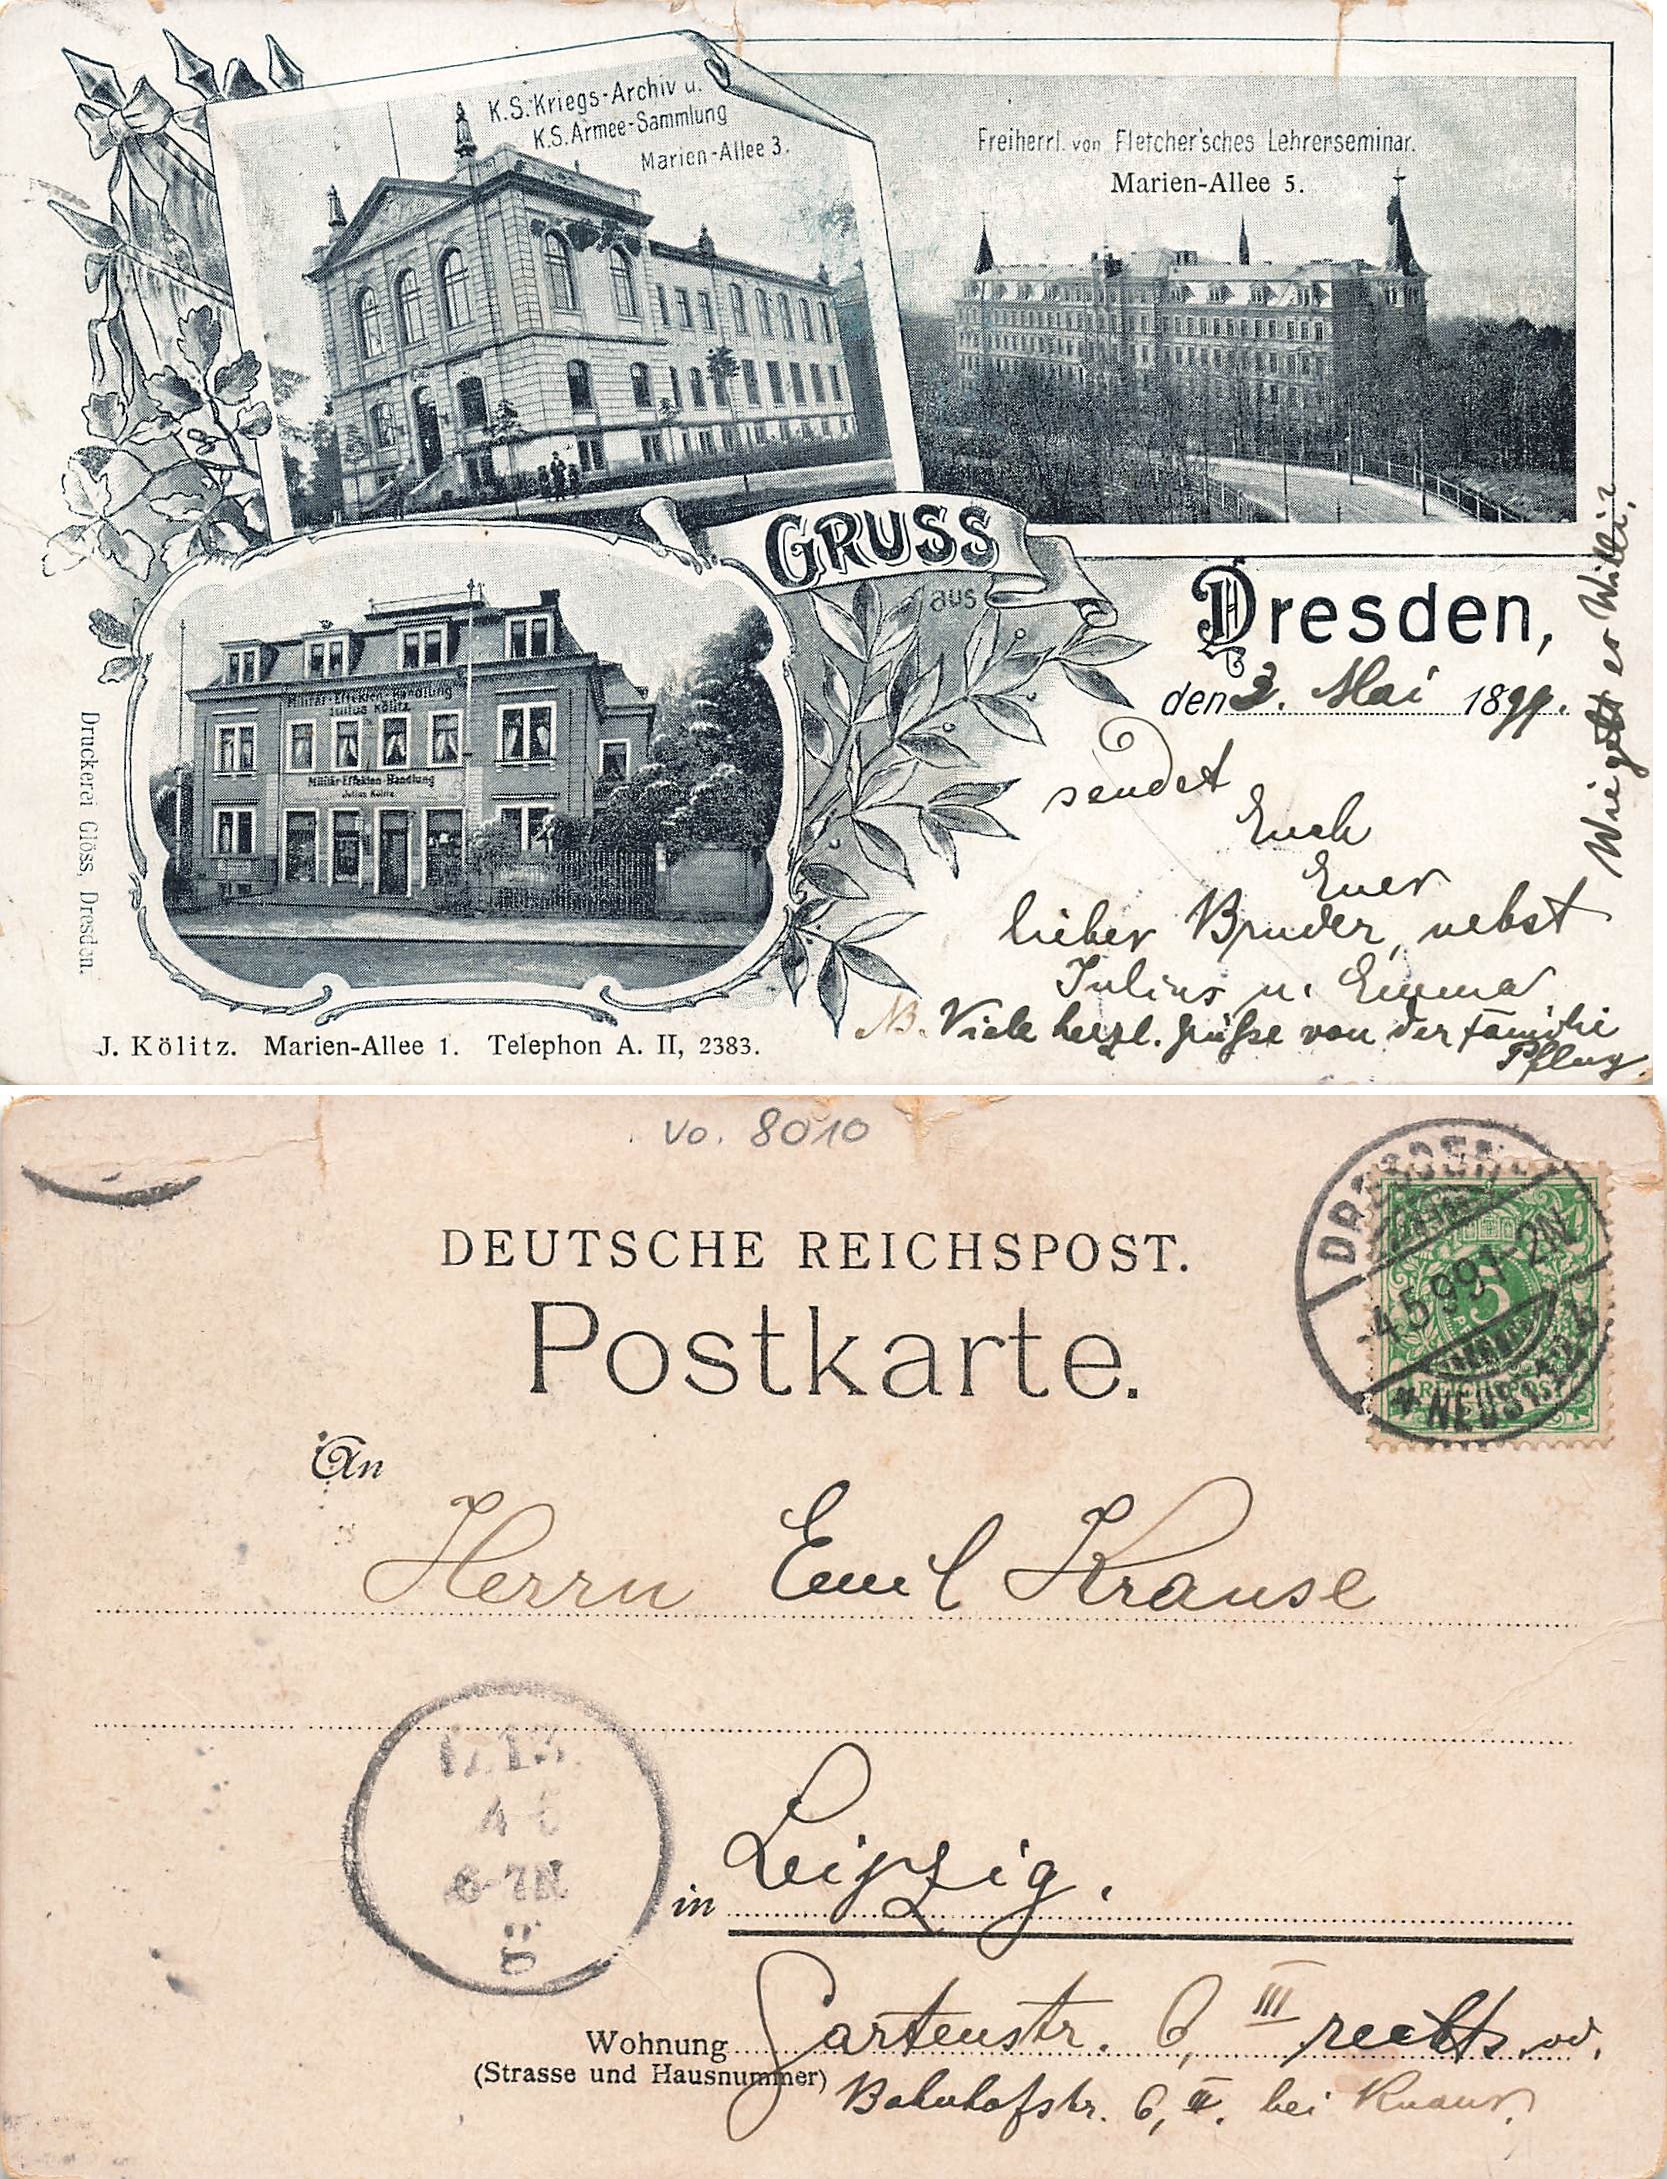 K.S. Kriegs-Archiv u.
K.S. Armee-Sammlung
Marien-Allee 3.
Freiherrl. von Fletcher'sches Lehrerseminar.
Marien-Allee 5.
GRUSS
aus
Dresden,
den 3. Mai 1899.
Militär-Effekten-Handlung
Julius Kölitz
Militär-Effekten-Handlung
Julius Kölitz
sendet
Euch
Euer
lieber Bruder, nebst
Julius u. Emma
NB. Viele herzl. Grüße von der Familie
Pflug.
Wie geht er Willi?
Druckerei Glöss, Dresden.
J. Kölitz. Marien-Allee 1. Telephon A. II, 2383.
Vo. 8010
DEUTSCHE REICHSPOST.
Postkarte.
DRESDEN
4.5.99 1-2N
NEUSTADT
5
REICHSPOST
An
Herrn Emil Krause
4 5
6-7N
in Leipzig.
Wohnung Gartenstr. 6, III rechts. od.
(Strasse und Hausnummer)
Bahnhofstr. 6, II. bei Knaur.